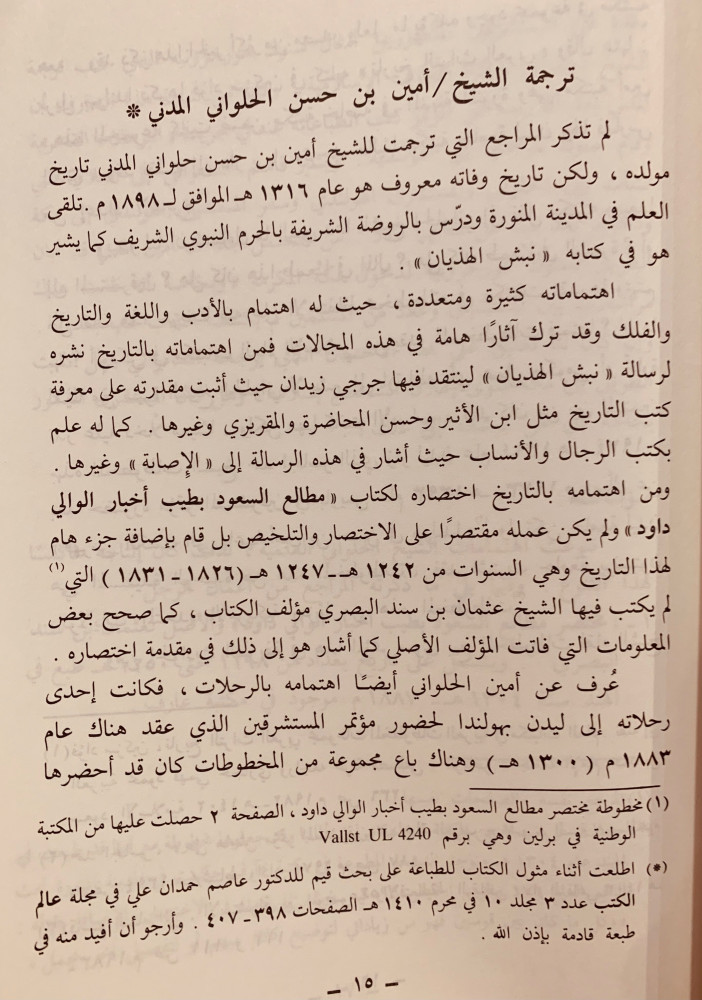 ترجمة الشيخ/أمين بن حسن الحلواني المدني *
لم تذكر المراجع التي ترجمت للشيخ أمين بن حسن حلواني المدني تاريخ
مولده ، ولكن تاريخ وفاته معروف هو عام ١٣١٦ هـ الموافق لـ ١٨٩٨ م .تلقى
العلم في المدينة المنورة ودرّس بالروضة الشريفة بالحرم النبوي الشريف كما يشير
هو في كتابه « نبش الهذيان » .
اهتماماته كثيرة ومتعددة ، حيث له اهتمام بالأدب واللغة والتاريخ
والفلك وقد ترك آثارًا هامة في هذه المجالات فمن اهتماماته بالتاريخ نشره
لرسالة « نبش الهذيان » لينتقد فيها جرجي زيدان حيث أثبت مقدرته على معرفة
كتب التاريخ مثل ابن الأثير وحسن المحاضرة والمقريزي وغيرها . كما له علم
بكتب الرجال والأنساب حيث أشار في هذه الرسالة إلى « الإصابة » وغيرها .
ومن اهتمامه بالتاريخ اختصاره لكتاب « مطالع السعود بطيب أخبار الوالي
داود » ولم يكن عمله مقتصرًا على الاختصار والتلخيص بل قام بإضافة جزء هام
لهذا التاريخ وهي السنوات من ١٢٤٢ هـ - ١٢٤٧ هـ (١٨٢٦ - ١٨٣١ ) التي(١)
لم يكتب فيها الشيخ عثمان بن سند البصري مؤلف الكتاب ، كما صحح بعض
المعلومات التي فاتت المؤلف الأصلي كما أشار هو إلى ذلك في مقدمة اختصاره .
عُرف عن أمين الحلواني أيضًا اهتمامه بالرحلات ، فكانت إحدى
رحلاته إلى ليدن بهولندا لحضور مؤتمر المستشرقين الذي عقد هناك عام
١٨٨٣ م ( ١٣٠٠ هـ ) وهناك باع مجموعة من المخطوطات كان قد أحضرها
(١) مخطوطة مختصر مطالع السعود بطيب أخبار الوالي داود ، الصفحة ٢ حصلت عليها من المكتبة
الوطنية في برلين وهي برقم Vallst UL 4240
(*) اطلعت أثناء مثول الكتاب للطباعة على بحث قيم للدكتور عاصم حمدان علي في مجلة عالم
الكتب عدد ٣ مجلد ١٠ في محرم ١٤١٠ هـ الصفحات ٣٩٨ - ٤٠٧ . وأرجو أن أفيد منه في
طبعة قادمة بإذن الله .
- ١٥ -